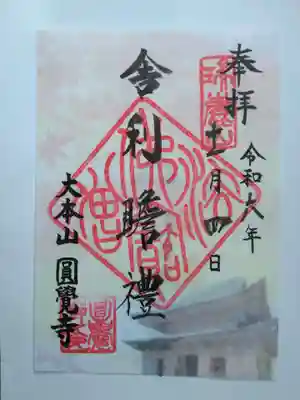 奉拝
令和六年
十一月四日
舎利瞻禮
大本山 圓覺寺
佛法僧寶